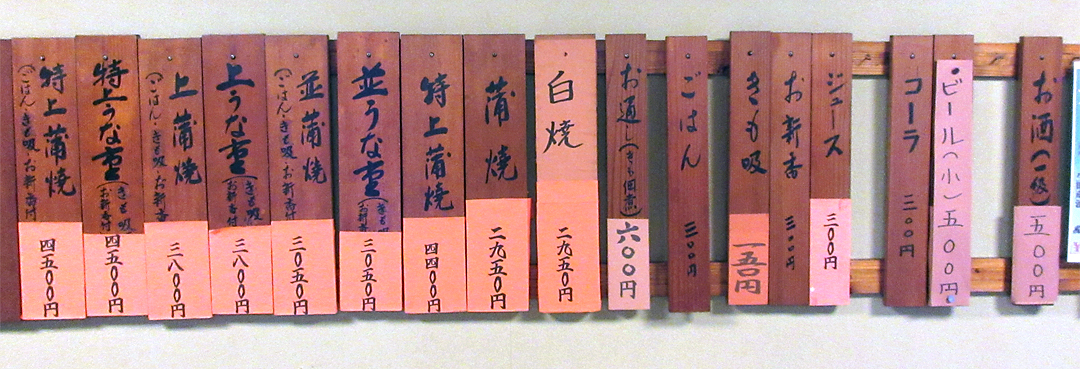 お酒(一級)
五〇〇円
・ビール(小)五〇〇円
コーラ
三〇〇円
ジュース
三〇〇円
お新香
三〇〇円
きも吸
一五〇円
ごはん
三〇〇円
お通し(きも佃煮)
六〇〇円
白焼
二九五〇円
蒲焼
二九五〇円
特上蒲焼
四四〇〇円
並うな重(きも吸
お新
三〇五〇円
並蒲焼
(ごはん・きも吸・お新香付
三〇五〇円
上うな重(きも吸
お新香付
三八〇〇円
上蒲焼
(ごはん・きも吸・お新香
三八〇〇円
特上うな重(きも吸
お新香付
四五〇〇円
特上蒲焼
(ごはん・きも吸・お新香付
四五〇〇円